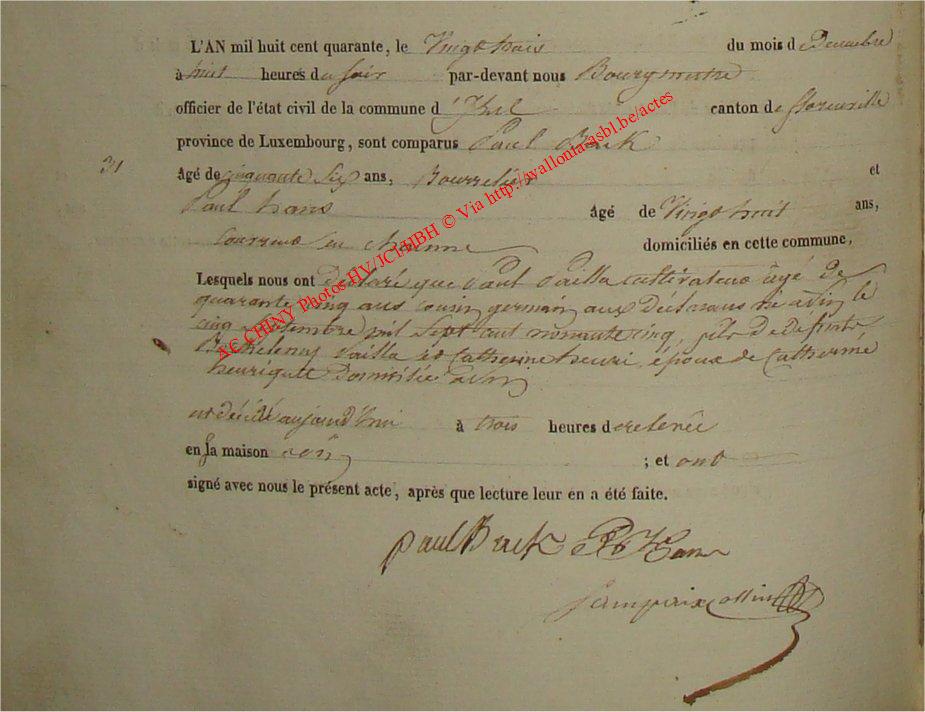 L'AN mil huit cent quarante, le Vingt trois du mois de Decembre
à huit heures du soir par-devant nous Bourgmestre
officier de l'état civil de la commune d'Izel canton de florenville
province de Luxembourg, sont comparus Paul Back
31
Agé de cinquante six ans, Bourrelier et
Paul hans Agé de Vingt huit ans,
domiciliés en cette commune,
Lesquels nous ont déclaré que Paul cultivateur âgé de
quarante cinq ans cousin germain aux Déclarans né le
cinq mil sept cent nonante cinq, fils de défunts
Barthelemy et Catherine henri, époux de Catherine
Domicilié
est décédé aujourd'hui à trois heures de relevée
en sa maison ; et ont
signé avec nous le présent acte, après que lecture leur en a été faite.
paul Back P Hans
AE CHINY Photos HV/JCH/IBH © Via http://wallonia-asbl.be/actes